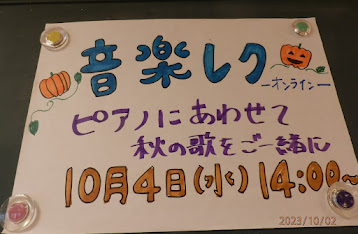 音楽レク
ーオンラインー
ピアノにあわせて
秋の歌をご一緒に
10月4日(水) 14:00~
2023/10/02